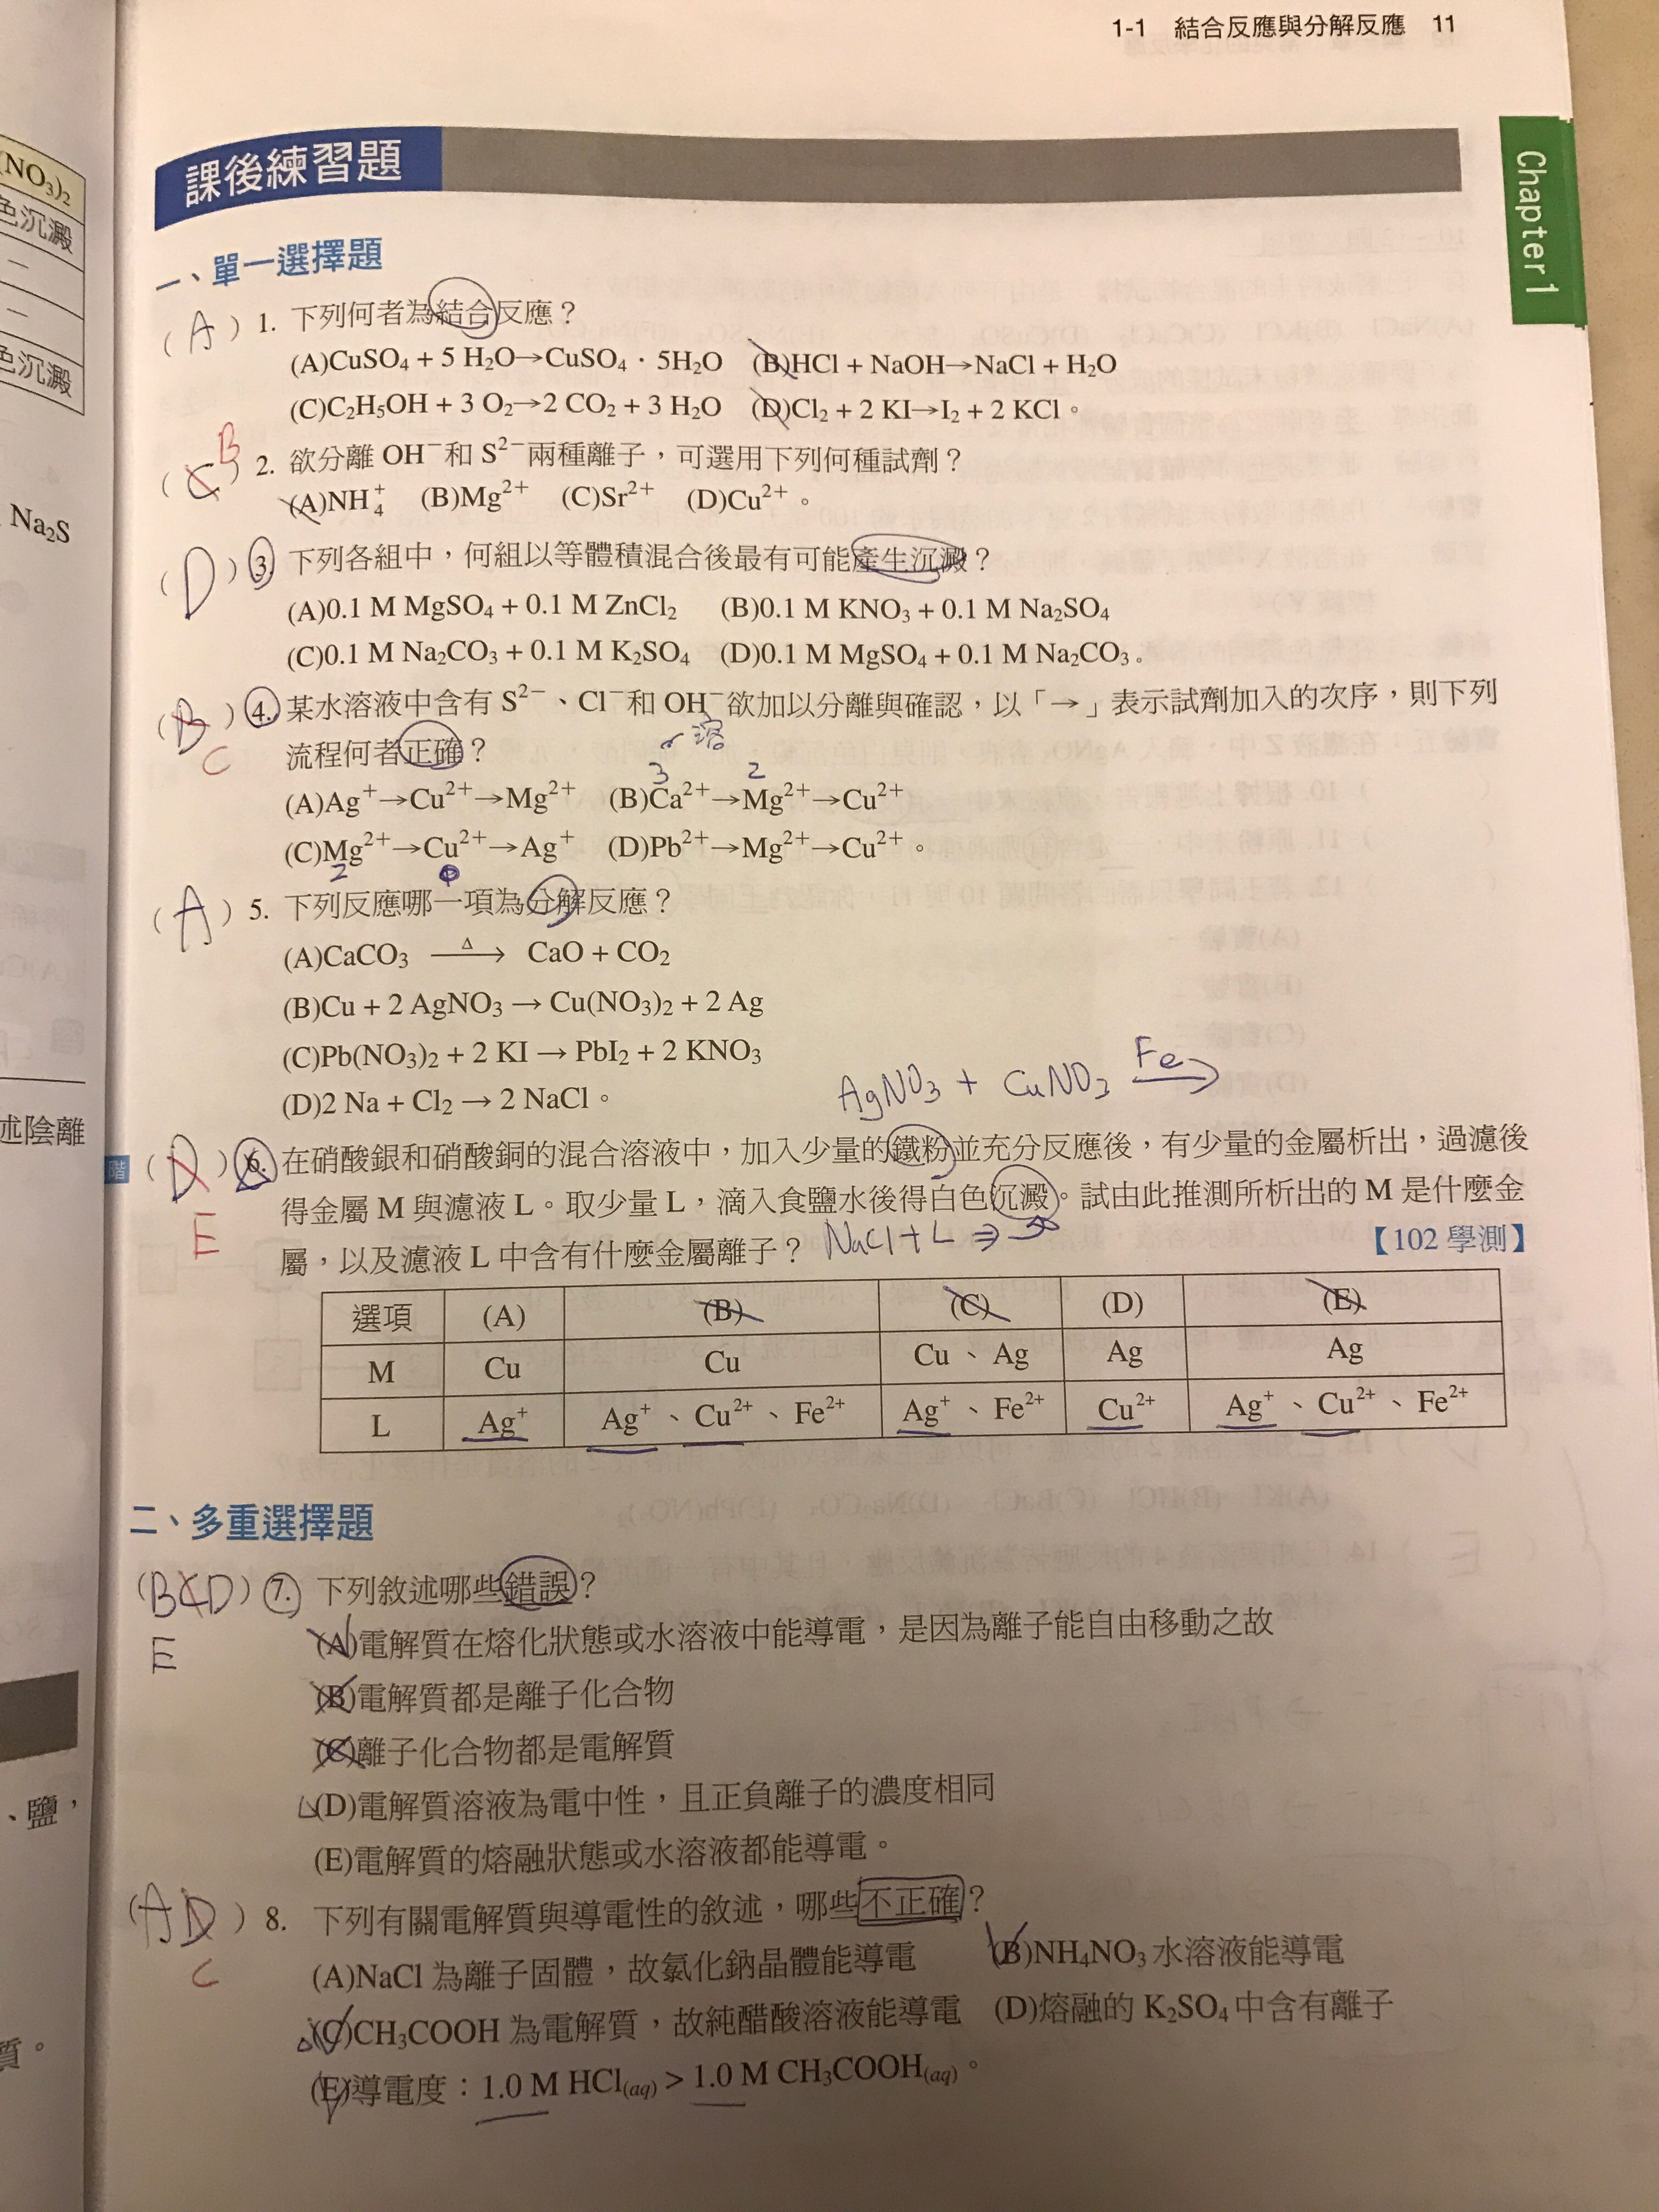 1-1 結合反應與分解反應 11
Chapter 1
(NO₃)₂
色沉澱
—
—
色沉澱
Na₂S
述陰離
、鹽,
質。
課後練習題
一、單一選擇題
(A) 1. 下列何者為結合反應?
(A)CuSO₄ + 5 H₂O→CuSO₄‧5H₂O (B)HCl + NaOH→NaCl + H₂O
(C)C₂H₅OH + 3 O₂→2 CO₂ + 3 H₂O (D)Cl₂ + 2 KI→I₂ + 2 KCl。
B
(C) 2. 欲分離 OH⁻ 和 S²⁻ 兩種離子,可選用下列何種試劑?
(A)NH₄⁺ (B)Mg²⁺ (C)Sr²⁺ (D)Cu²⁺。
(D) 3. 下列各組中,何組以等體積混合後最有可能產生沉澱?
(A)0.1 M MgSO₄ + 0.1 M ZnCl₂ (B)0.1 M KNO₃ + 0.1 M Na₂SO₄
(C)0.1 M Na₂CO₃ + 0.1 M K₂SO₄ (D)0.1 M MgSO₄ + 0.1 M Na₂CO₃。
(B) 4. 某水溶液中含有 S²⁻、Cl⁻ 和 OH⁻ 欲加以分離與確認,以「→」表示試劑加入的次序,則下列
C 流程何者正確? 溶
3 2
(A)Ag⁺→Cu²⁺→Mg²⁺ (B)Ca²⁺→Mg²⁺→Cu²⁺
(C)Mg²⁺→Cu²⁺→Ag⁺ (D)Pb²⁺→Mg²⁺→Cu²⁺。
2
(A) 5. 下列反應哪一項為分解反應?
(A)CaCO₃ —Δ→ CaO + CO₂
(B)Cu + 2 AgNO₃ → Cu(NO₃)₂ + 2 Ag
(C)Pb(NO₃)₂ + 2 KI → PbI₂ + 2 KNO₃
(D)2 Na + Cl₂ → 2 NaCl。
AgNO₃ + CuNO₃ Fe→
階 (D) 6. 在硝酸銀和硝酸銅的混合溶液中,加入少量的鐵粉並充分反應後,有少量的金屬析出,過濾後
E 得金屬 M 與濾液 L。取少量 L,滴入食鹽水後得白色沉澱。試由此推測所析出的 M 是什麼金
屬,以及濾液 L 中含有什麼金屬離子? NaCl+L ⇒ 【102 學測】
選項 (A) (B) (C) (D) (E)
M Cu Cu Cu、Ag Ag Ag
L Ag⁺ Ag⁺、Cu²⁺、Fe²⁺ Ag⁺、Fe²⁺ Cu²⁺ Ag⁺、Cu²⁺、Fe²⁺
二、多重選擇題
(BCD) 7. 下列敘述哪些錯誤?
E (A)電解質在熔化狀態或水溶液中能導電,是因為離子能自由移動之故
(B)電解質都是離子化合物
(C)離子化合物都是電解質
(D)電解質溶液為電中性,且正負離子的濃度相同
(E)電解質的熔融狀態或水溶液都能導電。
(AD) 8. 下列有關電解質與導電性的敘述,哪些不正確?
C (A)NaCl 為離子固體,故氯化鈉晶體能導電 (B)NH₄NO₃ 水溶液能導電
(C)CH₃COOH 為電解質,故純醋酸溶液能導電 (D)熔融的 K₂SO₄ 中含有離子
(E)導電度:1.0 M HCl(aq) > 1.0 M CH₃COOH(aq)。